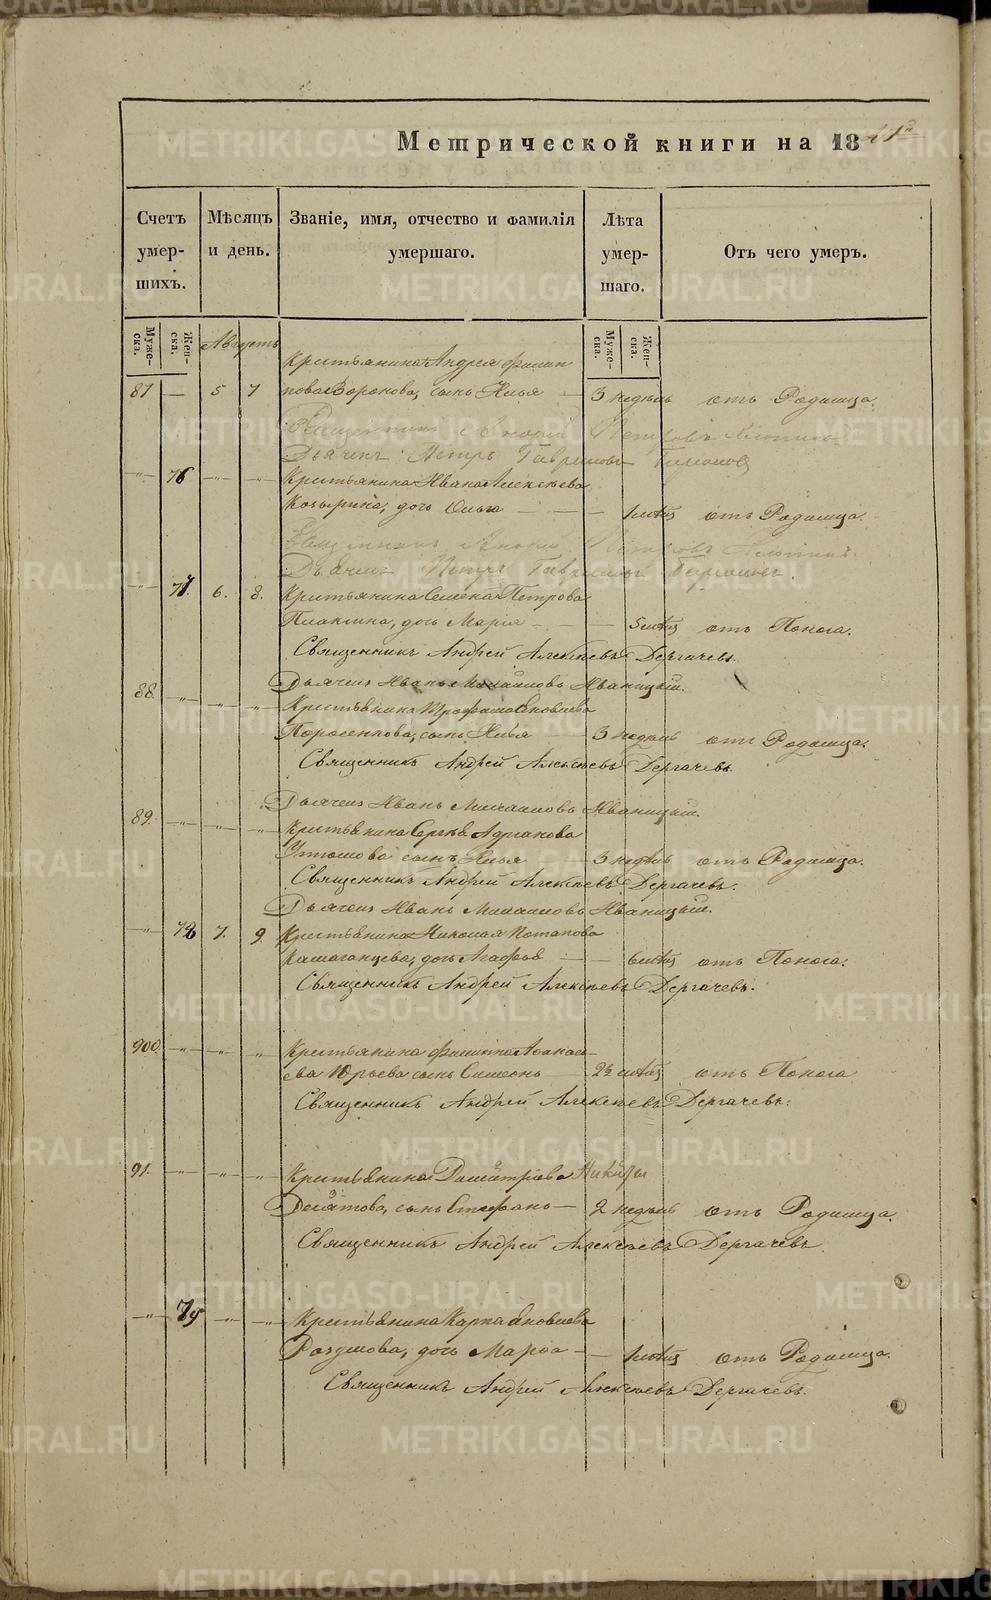 Метрической книги на 1841й
Счетъ умершихъ.
Мѣсяцъ и день.
Званіе, имя, отчество и фамилія умершаго.
Лѣта умершаго.
Отъ чего умеръ.
Мужеска.
Женска.
Августъ
Мужеска.
Женска.
Крестьянина Андрея Филип
87 — 5 7 пова Воронова, сынъ Илья — 3 недѣль отъ Родимца.
Петровъ
Дьячекъ Петръ Гавриловъ
76 Крестьянина Ивана Алексѣева
дочь Ольга — 1 мѣс отъ Родимца.
Петровъ
Дьячекъ Петръ Гавриловъ
77. 6. 8. Крестьянина Семена Петрова
Плаксина, дочь Марія — 5 мѣс отъ Поноса.
Священникъ Андрей Алексѣевъ Дергачевъ.
Дьячекъ Иванъ Михайловъ Иваницкій.
88. Крестьянина Трофима Яковлева
сынъ Илья — 3 недѣль отъ Родимца.
Священникъ Андрей Алексѣевъ Дергачевъ.
Дьячекъ Иванъ Михайловъ Иваницкій.
89. Крестьянина Сергѣя
сынъ Илья — 3 недѣль отъ Родимца.
Священникъ Андрей Алексѣевъ Дергачевъ.
Дьячекъ Иванъ Михайловъ Иваницкій.
78 7. 9 Крестьянина Николая Потапова
дочь Агафья — 6 мѣс отъ Поноса.
Священникъ Андрей Алексѣевъ Дергачевъ.
900. Крестьянина Филиппа Афанась
ева Юрьева сынъ Симеонъ — мѣс отъ Поноса
Священникъ Андрей Алексѣевъ Дергачевъ.
91. Крестьянина Димитрія
сынъ Стефанъ — 2 недѣль отъ Родимца.
Священникъ Андрей Алексѣевъ Дергачевъ
79 Крестьянина Карпа Яковлева
дочь — 1 мѣс отъ Родимца.
Священникъ Андрей Алексѣевъ Дергачевъ.
METRIKI.GASO-URAL.RU